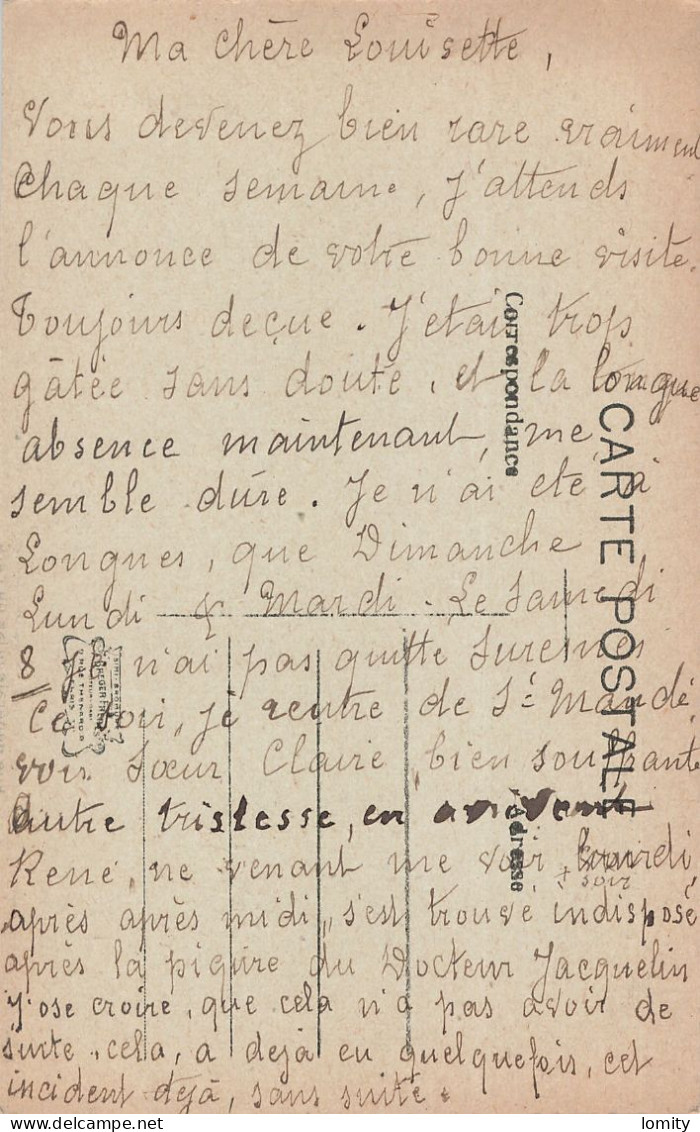 Ma chère Louisette,
Vous devenez bien rare vraiment
Chaque semaine, J'attends
l'annonce de votre bonne visite.
Toujours deçue. J'étais trop
gâtée sans doute, et la longue
absence maintenant, me
semble dure. Je n'ai été à
Longues, que Dimanche
Lundi & Mardi. Le Samedi
8 je n'ai pas quitté Suresnes
Ce soir, je rentre de St Mandé
voir Sœur Claire, bien souffrante
autre tristesse, en arrivant
René, ne venant me voir
soir
après après midi, s'est trouvé indisposé
après la piqure du Docteur Jacquelin
J'ose croire, que cela n'a pas avoir de
suite, cela, a dejà eu quelquefois, cet
incident dejà, sans suite.
CARTE POSTALE
Correspondance
Adresse
lomity